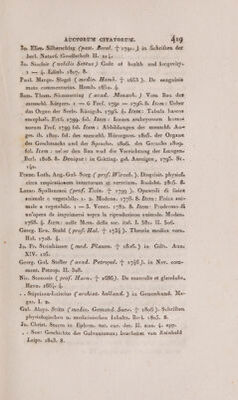 AUCTORUM CITATORUM. 419
Io. Elias. Silberschlag (past. Berol. † 1791.) in Schriften der
berl. Naturf. Gesellschaft II. 214.
Io. Sinclair (nobilis Scotus) Code of health and longevity.
1 — 4. Edinb. 1807. 8.
Paul. Marqu. Slegel (medic. Hamb. † 1653.) De sanguinis
motu commentarius. Hamb. 1650. 4.
Sam. Thom. Sömmerring (acad. Monach.) Vom Bau des
menschl. Körpers. 1 — 6 Fref. 1791 — 1796. 8. Item: Ueber
das Organ der Seele. Königsb. 1796. 4. Item: Tabula baseos
encephali. Fref. 1799. fol. Item: Icones embryonum humanorum
Fref. 1799 fol. Item: Abbildungen des menschl. Auges
ib. 1801. fol. des menschl. Hörorganes. 1806. der Organe
des Geschmacks und der Sprache. 1806. des Geruchs 1809.
fol. Item: über den Bau und die Verrichtung der Lungen.
Berl. 1808. 8. Denique: in Götting. gel. Anzeigen, 1795. St.
Franc. Loth. Aug. Guil. Sorg (prof. Wirceb.) Disquisit. physiol.
circa respirationem insectorum et vermium. Rudolst. 1805. 8.
Lazar. Spallanzani (prof. Ticin. † 1799.) Opuscoli di fisica
animale e vegetabile. 1. 2. Modena. 1776. 8. Item: Fisica animale
e vegetabile. 1 — 3. Venez. 1782. 8. Item: Prodromo di
un'opera da imprimersi sopra la riproduzione animale. Modena.
1768. 4. Item: nelle Mem. della soc. ital. I. 581. II. 506.
Georg. Ern. Stahl (prof. Hal. † 1734.) Theoria medica vera.
Hal. 1708. 4.
Io. Fr. Steinhäuser (med. Plauen. † 1825.) in Gilb. Ann.
XIV. 126.
Georg. Gul. Steller (acad. Petropol. † 1746.) in Nov. comment.
Petrop. II. 398.
Nic. Stenonis (prof. Havn. † 1686.) De musculis et glandulis,
Havn. 1664. 4.
Gul. Aloys. Stütz (medic. Gemund. Suev. † 1806.) Schriften
physiologischen u. medicinischen Inhalts. Berl. 1805. 8.